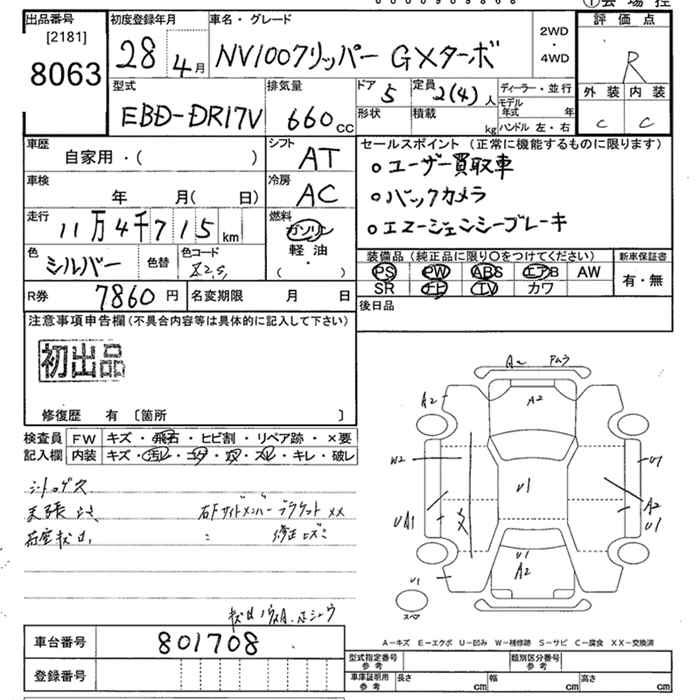 出品番号 [2181] 8063
初度登録年月 28 4月
車名・グレード NV100クリッパー GXターボ
2WD・4WD
評価点 R
外装 内装
C C
型式 EBD-DR17V
排気量 660 CC
ドア 5
形状
定員 2(4)人
積載 kg
ディーラー・並行
モデル年式 年
ハンドル 左・右
車歴 自家用・( )
シフト AT
セールスポイント (正常に機能するものに限ります)
○ユーザー買取車
○バックカメラ
○エマージェンシーブレーキ
車検 年 月( 日)
冷房 AC
走行 11万4千715km
燃料 ガソリン・軽油 ( )
色 シルバー 色替
色コード
装備品 (純正品に限り○をつけてください)
PS PW ABS エアB AW
SR ナビ TV カワ
新車保証書
有・無
R券 7860円
名変期限 月 日
後日品
注意事項申告欄(不具合内容等は具体的に記入して下さい)
初出品
修復歴 有 〔箇所 〕
検査員記入欄
FW キズ・飛石・ヒビ割・リペア跡・×要
内装 キズ・汚レ・コゲ・穴・スレ・キレ・破レ
天張
右Fサイドメンバーブラケット XX
修正
A2
A2
W2
U1
U1
UA1
A2
U1
U1
A2
U1
スペア
A−キズ E−エクボ U−凹み W−補修跡 S−サビ C−腐食 XX−交換済
車台番号 801708
登録番号
型式指定番号 参考
類別区分番号 参考
車庫証明用 参考 長さ cm 幅 cm 高さ cm